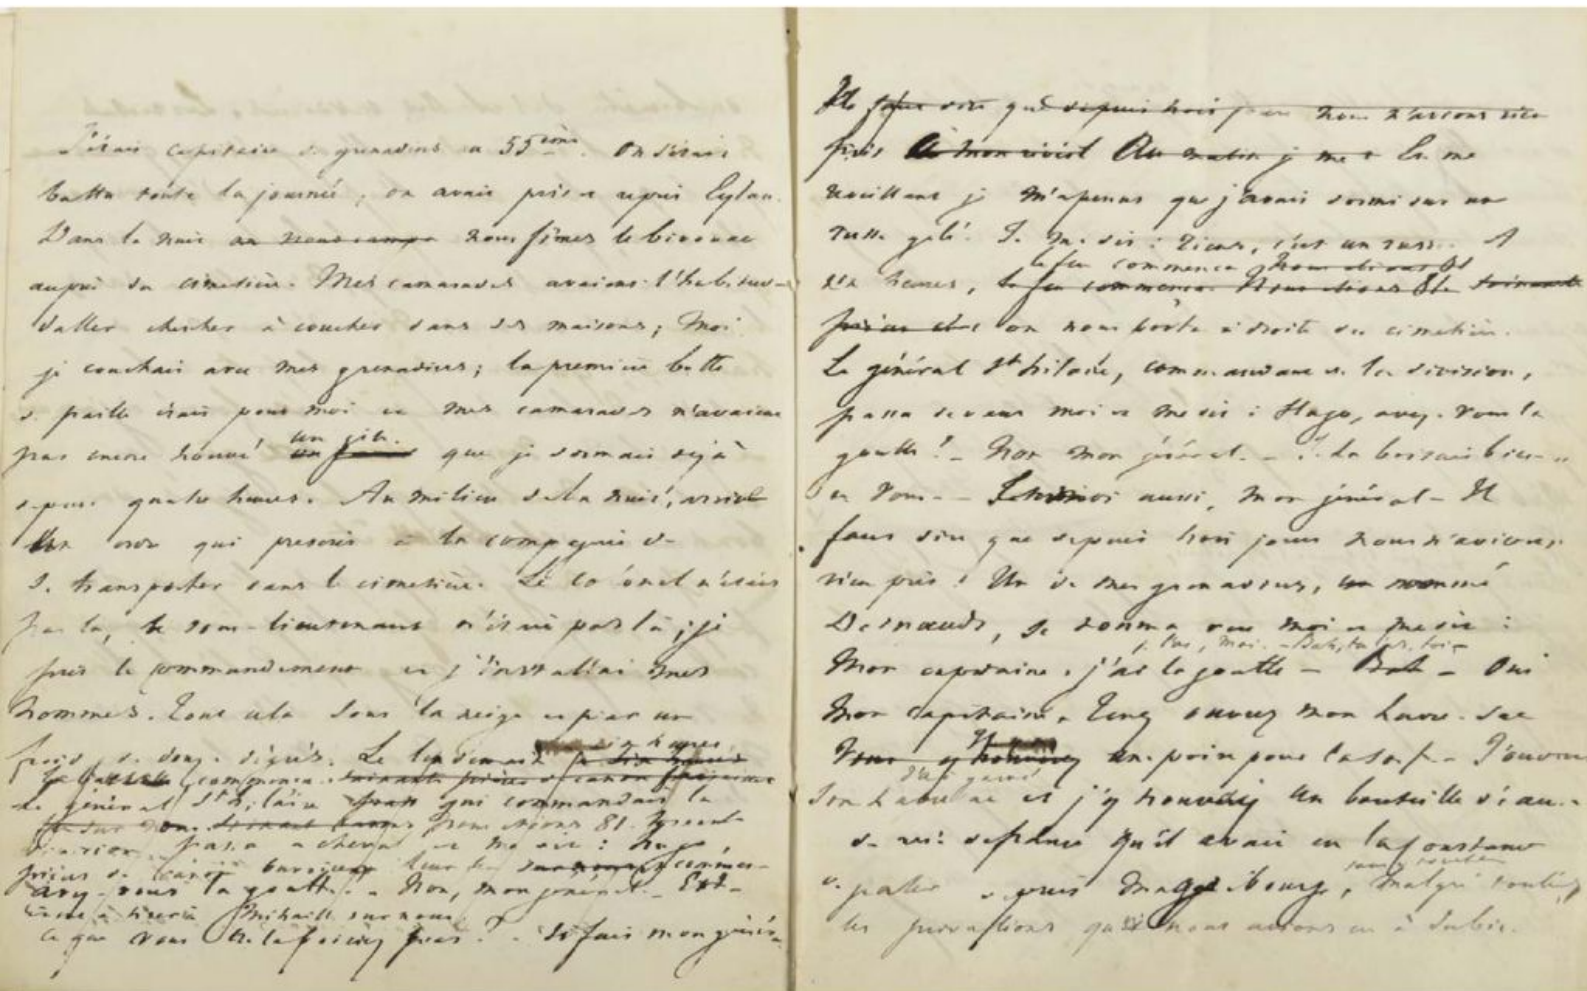 J'étais capitaine de grenadiers au 55ème. On s'était
battu toute la journée, on avait pris et repris Eylau.
Dans la nuit nous fîmes le bivouac
auprès du cimetière. Mes camarades avaient l'habitude
d'aller chercher à coucher dans des maisons; moi
je couchais avec mes grenadiers; la première botte
de paille était pour moi et mes camarades n'avaient
pas encore trouvé un gîte que je dormais déjà
depuis quatre heures. Au milieu de la nuit, arrive
un ordre qui prescrit à la compagnie de
se transporter dans le cimetière. Le colonel n'était
pas là, le sous-lieutenant n'était pas là; je
pris le commandement et j'installai mes
hommes. Tout cela sous la neige et par un
froid de douze degrés. Le lendemain
commença
Le général St hilaire qui commandait la
nous étions 81.
division passa à cheval et me dit: hugo,
pièces de canon
avez-vous la goutte? - Non, mon général. - Est-
mitraille sur nous
ce que vous ne la boiriez pas? - Si fait mon général
Il faut dire que depuis trois jours nous n'avions rien
pris En me
réveillant je m'aperçus que j'avais dormi sur un
russe gelé. Je me dis: Tiens, c'est un russe. A
le feu commença nous étions
six heures, le feu commença. Nous étions
on nous porta à droite du cimetière.
Le général St hilaire, commandant de la division,
passa devant moi et me dit: Hugo, avez-vous la
goutte? - Non mon général. - Je la boirais bien
avec vous - Et moi aussi, mon général - Il
faut dire que depuis trois jours nous n'avions
rien pris! Un de mes grenadiers, un nommé
Desnoeuds, se tourna vers moi et me dit:
Mon capitaine, j'ai la goutte - Bah - Oui
Mon capitaine. Tenez ouvrez mon havre-sac
une poire pour la soif. - J'ouvre
son havre-sac et j'y trouve une bouteille d'eau-
de-vie de france qu'il avait eu la constance
de garder depuis Magdebourg, malgré toutes
les privations que nous avions eu à subir.